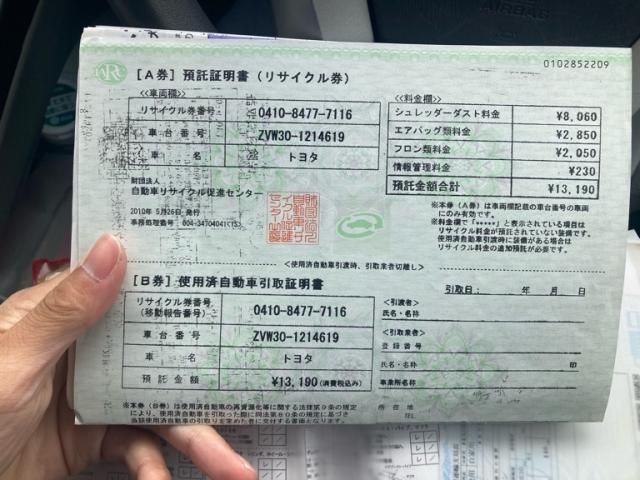 AIRBAG
0102852209
[A券] 預託証明書 (リサイクル券)
<<車両欄>>
リサイクル券番号 0410-8477-7116
車台番号 ZVW30-1214619
車名 トヨタ
<<料金欄>>
シュレッダーダスト料金 ¥8,060
エアバッグ類料金 ¥2,850
フロン類料金 ¥2,050
情報管理料金 ¥230
預託金額合計 ¥13,190
財団法人
自動車リサイクル促進センター
2010年 5月26日 発行
事務処理番号 004-34704041(TS)
※本券(A券)は車両欄記載の車台番号の車両
にのみ有効です。
※料金欄で「*****」と表示されている項目は
リサイクル料金が預託されていない装備です。
使用済自動車引渡時に装備がある場合は
リサイクル料金の追加預託が必要です。
<使用済自動車引渡時、引取業者切離し>
[B券] 使用済自動車引取証明書
リサイクル券番号
(移動報告番号) 0410-8477-7116
車台番号 ZVW30-1214619
車名 トヨタ
預託金額 ¥13,190(消費税込み)
引取日: 年 月 日
<引渡者>
氏名・名称
<引取業者>
登録番号
氏名・名称 印
事業所名称
所在地
TEL
※本券(B券)は使用済自動車の再資源化等に関する法律第9条の規定
により、使用済自動車を引取った際に同法第80条の規定に基づき
当該使用済自動車の引取りを求めた者に交付する書面となります。